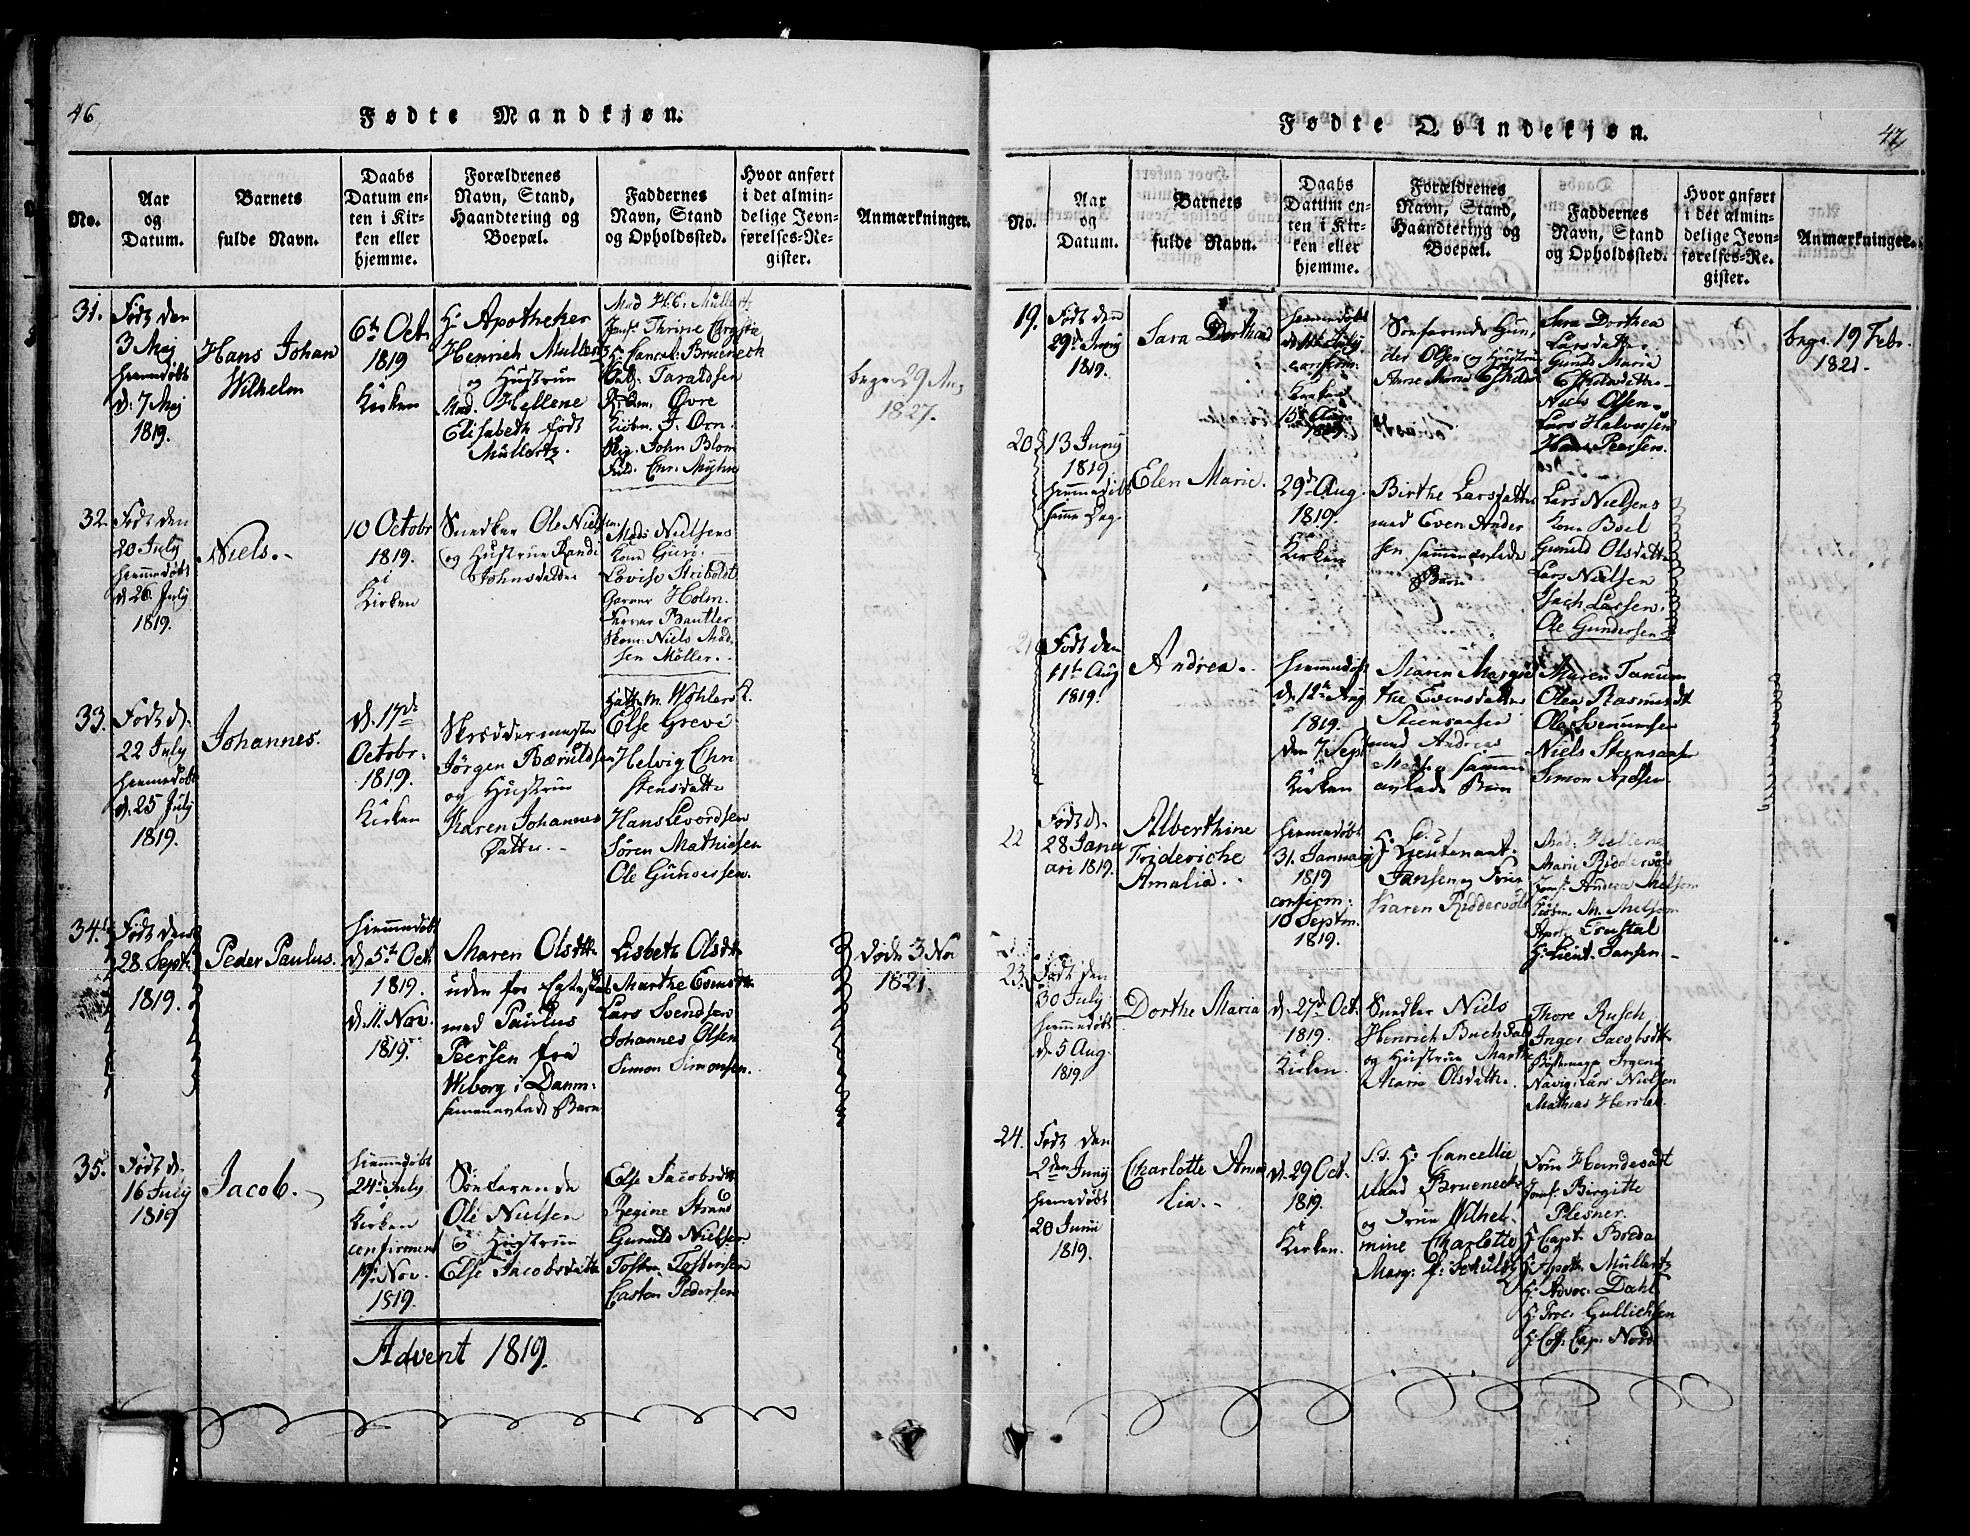 46.
Fødte Mandkjøn.
No.
Aar
og
Datum.
Barnets
fulde Navn.
Daabs
Datum en-
ten i Kir-
ken eller
hjemme.
Forældrenes
Navn, Stand,
Haandtering og
Boepæl.
Faddernes
Navn, Stand
og Opholdssted.
Hvor anført
i det almin-
delige Jevn-
førelses-Re-
gister.
Anmærkninger.
31.
Født den
3 Maj
hiemmedøbt
d. 7 Maj
1819.
Hans Johan
Wilhelm
6te Oct.
1819
i
Kirken
Hr Apotheker
Henrich Mullertz
og Hustrue
Mad. Hellene
Elisabeth født
Müllertz.
Mad H. C. Müllertz
Jomf. Thrine
Hr Cancel. Brueneck
Taraldsen
Øvre
Kiøbm. J. Orn.
John Blom
Chr. Myhre
29 Au
1827.
32.
Født den
20 July
hiemmedøbt
d. 26. July
1819.
Niels.
10 Octobr
1819.
i
Kirken
Snedker Ole Nielsen
og Hustrue Randi
Johnsdatter
Mads Nielsens
Kone Guri.
Lovise Striboldt
Garver Holm.
Farver Bautler
Skom: Niels Mad-
sen Möller.
33.
Født d.
22 July
hiemmedøbt
d. 25 July
1819.
Johannes.
d. 17de
Octobr.
1819.
i
Kirken
Skreddermester
Jörgen Bærulfsen
og Hustrue
Karen Johannes
Datter.
Cath. M. Wöhlers
Else Greve
Helvig Chri
stensdatter
Hans Levordsen
Sören Mathiesen
Ole Gundersen.
34.
Født den
28 Septr.
1819.
Peder Paulus.
hiemmedøbt
d. 5te Oct.
1819.
d. 11 Nov.
1819.
Maren Olsdtr
uden for Egteskab
med Paulus
Peersen fra
Wiborg i Danm:
sammenavlede Barn
Lisbeth Olsdtr
Marthe Evensdtr
Lars Svendsen
Johannes Olsen
Simon Simonsen.
døde 3 No
1821.
35.
Født d.
16 July
1819
Jacob.
hiemmedøbt
24de July
i
Kirken
confirmert
19de Nov.
1819.
Søefarende
Ole Nielsen
og Hustrue
Else Jacobsdatter
Else Jacobsdtr
Regine Strand
Gunuld Nielsen
Tosten Tostensen
Casten Pedersen
Advent 1819.
47.
Fødte Qvindekjøn.
No.
Aar
og
Datum.
Barnets
fulde Navn.
Daabs
Datum en-
ten i Kir-
ken eller
hjemme.
Forældrenes
Navn, Stand,
Haandtering og
Boepæl.
Faddernes
Navn, Stand
og Opholdssted.
Hvor anført
i det almin-
delige Jevn-
førelses-Re-
gister.
Anmærkninger.
19.
Født den
29de Juny
1819.
Sara Dorthea
hiemmedøbt
d. July
confirm.
i Kirken
15de Aug.
1819.
Søefarende Gun-
der Olsen og Hustrue
Anne Marie
Sara Dorthea
Larsdatter.
Gunild Maria
Niels Olsen.
Lars Halversen
Hans Peersen.
begr. 19 Febr.
1821.
20.
13 Juny
1819.
hiemmedøbt
samme Dag.
Elen Marie.
29de Aug.
1819.
i
Kirken
Birthe Larsdatter
med Even Ander
sen sammenavlede
Barn
Lars Nielsens
Kone Boel
Gunuld Olsdatter
Lars Nielsen
Isach Larsen.
Ole Gundersen
21
Født den
11te Aug
1819.
Andrea.
hiemmedøbt
d. 12te Aug
1819.
den 7. Sept
i
Kirken
Maren Margre
the Evensdatter
Steensaasen
med Andreas
sammen
avlede Barn
Maren Tanum
Olea Rasmusdt
Ole Svenumsen
Niels Steensaasen
Simon
22
Født d.
28 Janu
ari 1819.
Alberthine
Frideriche
Amalia.
hiemmedøbt
31. January
1819
confirm:
10 Septm.
1819.
Hr Lieutenant
Jansen og Frue
Karen Riddervold
Mad. Hellene
Marie Riddervold
Jomf. Andrea Melsom
Kiøbm. M. Melsom
Frustal
Hr Lieut. Jansen
23.
Født den
30 July
hiemmedøbt
d. 5 Aug.
1819.
Dorthe Maria
d. 27de Oct.
1819.
i
Kirken.
Snedker Niels
Henrich Buchdal
og Hustrue Marthe
Marie Olsdatter.
Thore Rusch
Inger Jacobsdtr
Navig: Lars Nielsen
Mathias Herslev.
24.
Født den
2den Juny
hiemmedøbt
20 Juni
1819.
Charlotte Ama
lia.
d. 29 Oct.
1819.
i
Kirken.
S.T. Hr Cancellie
Raad Brueneck
og Frue Wilhel-
mine Charlotte
Marg: f: Schultz
Frue
Jomf. Birgitte
Plesner.
Hr Capt. Breda
Hr Apoth. Mullertz
Hr Advoc. Dahl
Hr Proc. Gullichsen
Hr Cap. Nord